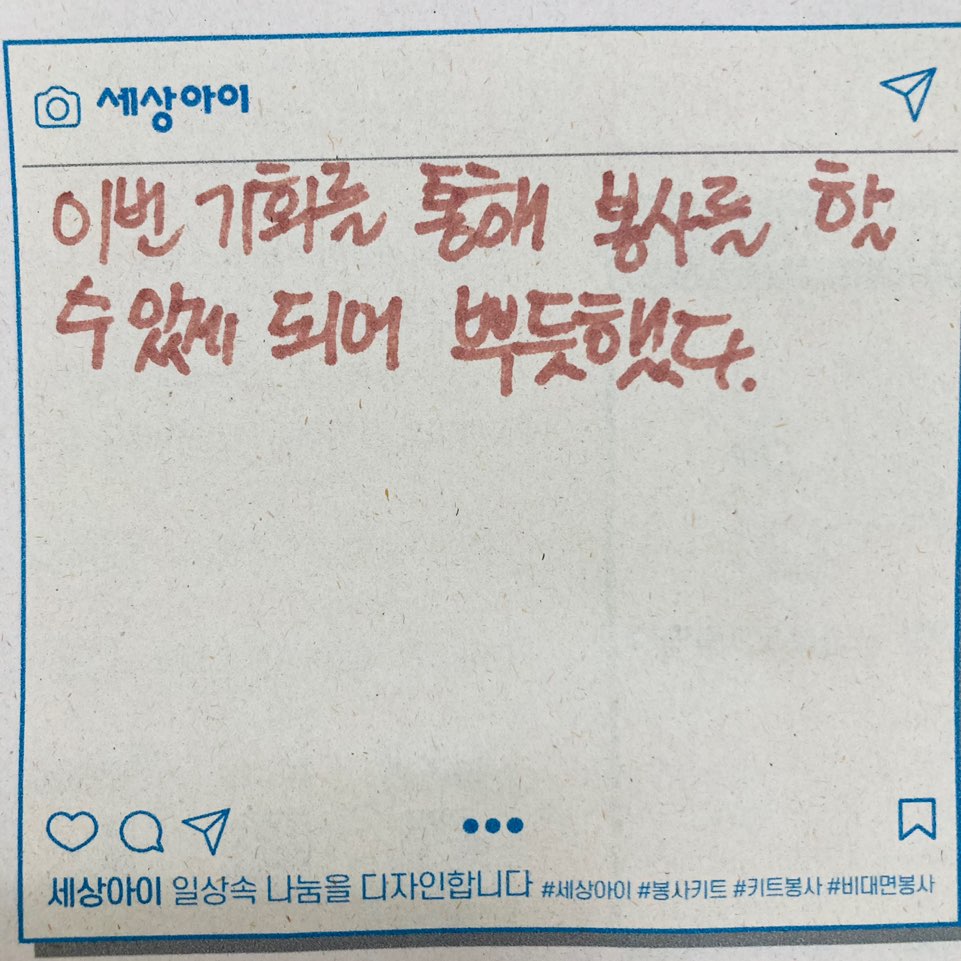 세상아이
이번 기회를 통해 봉사를 할
수 있게 되어 뿌듯했다.
세상아이 일상속 나눔을 디자인합니다 #세상아이 #봉사키트 #키트봉사 #비대면봉사